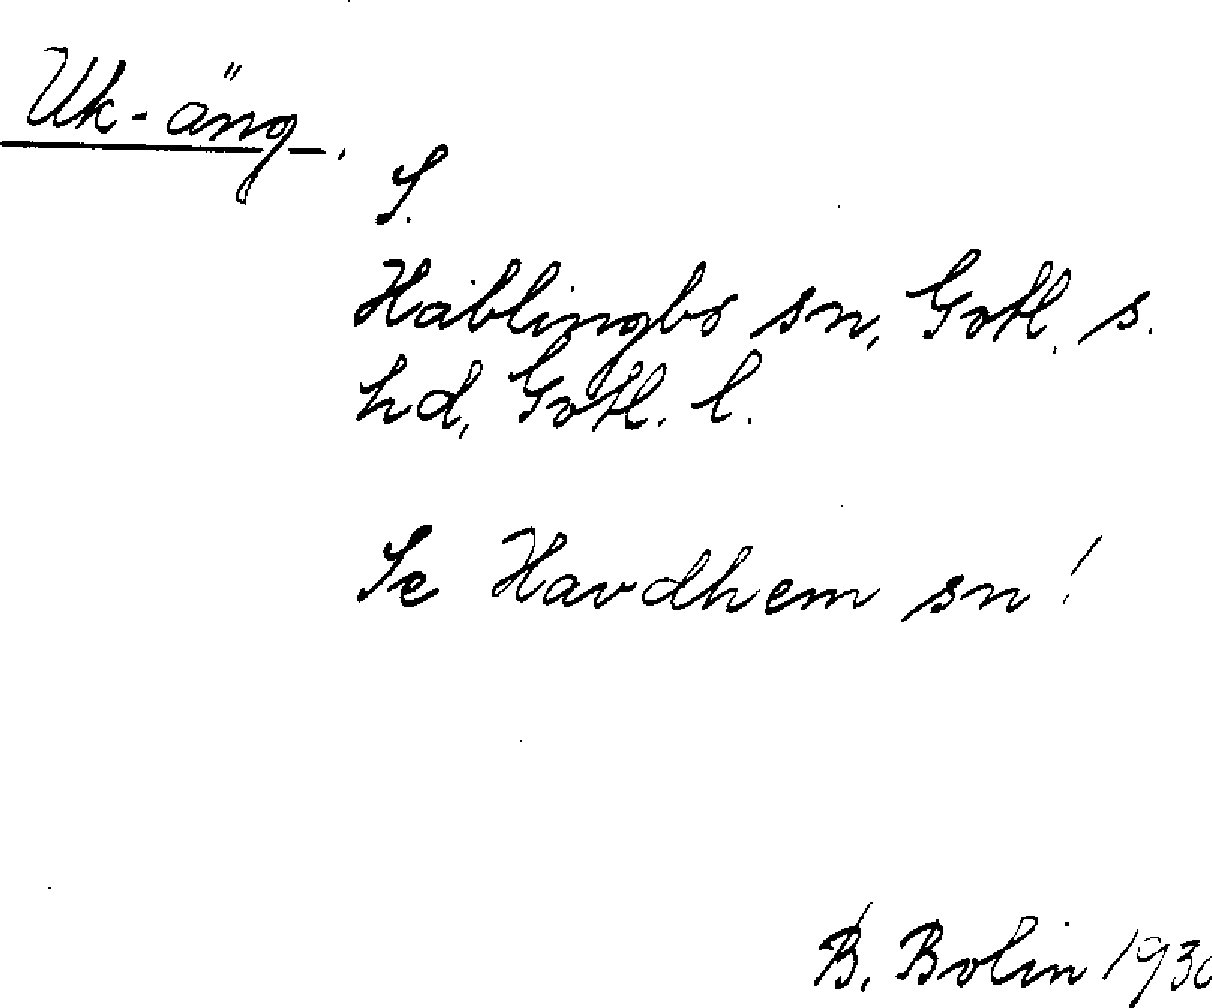 Uk-äng.
S.
Hablingbo sn, Gotl. s.
hd, Gotl. l.
Se Havdhem sn!
B. Bolin 1930